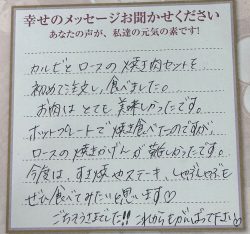 幸せのメッセージお聞かせください
あなたの声が、私達の元気の素です!
カルビとロースの焼き肉セットを
初めて注文し、食べました。
お肉はとても美味しかったです。
ホットプレートで焼き食べたのですが、
ロースの焼きかげんが難しかったです。
今度は、すき焼やステーキ、しゃぶしゃぶも
ぜひ食べてみたいと思います♡
ごちそうさまでした!! これからもがんばって下さい